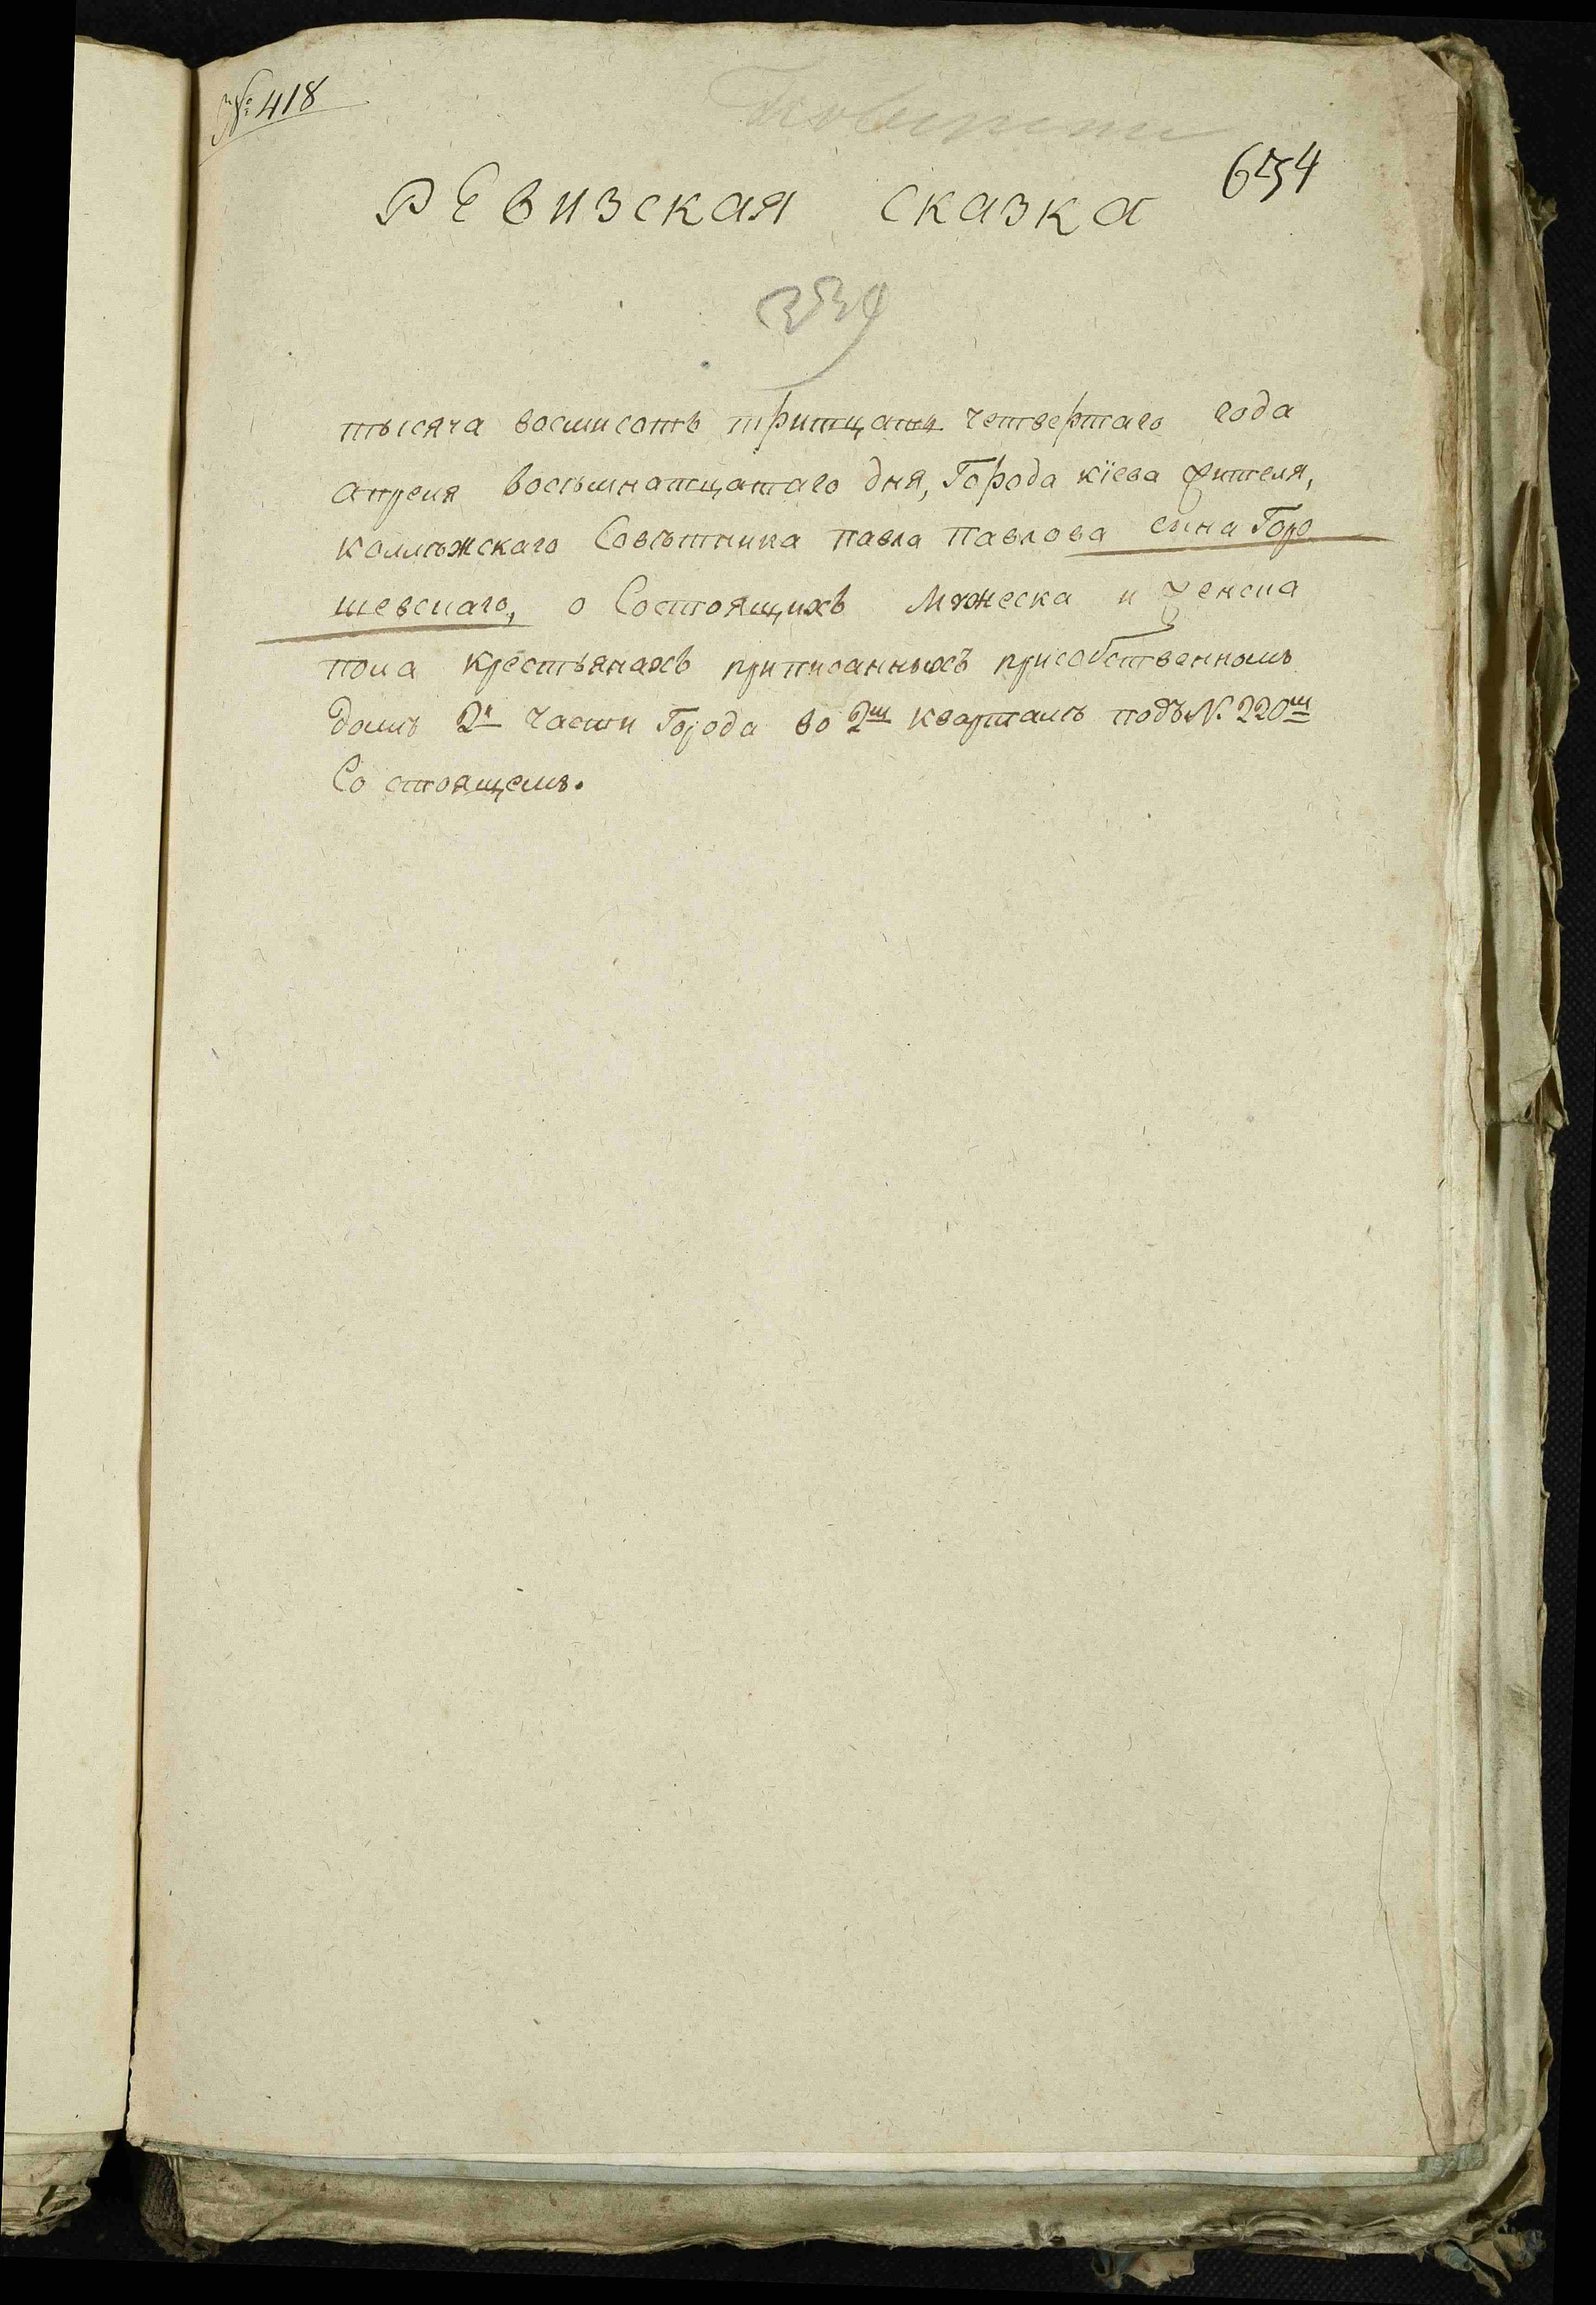 № 418
654
РЕВИЗСКАЯ СКАЗКА
тысяча восмисотъ тритцать четвертаго года
апреля восьмнатцатаго дня, Города кіева жителя,
коллѣжскаго Совѣтника павла павлова сина Горо
шевскаго, о Состоящихъ мужеска и женска
пола крестьянахъ приписанныхъ присобственномъ
домѣ 2й части Города во 2мъ кварталѣ подъ N. 220мъ
Состоящемъ.